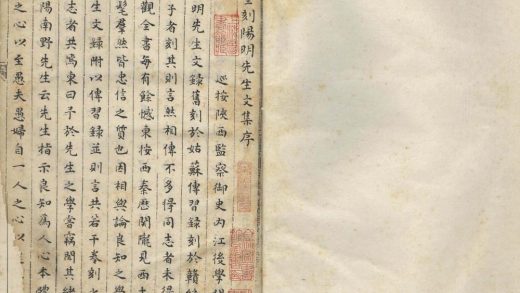 刻陽明先生文集序
巡按陝西監察御史內江後學
明先生文錄舊刻於姑蘇傳習錄刻於贛
子者刻其則言然相傳不多得同志者未得
觀全書每有餘憾東按西秦歷關隴見西土
髦羣然皆忠信之質也因相與論良知之學
生文錄附以傳習錄並則言共若干卷刻之
志者共焉東曰予於先生之學嘗竊聞其緒
陽南野先生云先生指示良知為人心本體
之心以至愚夫愚婦自一人之心以